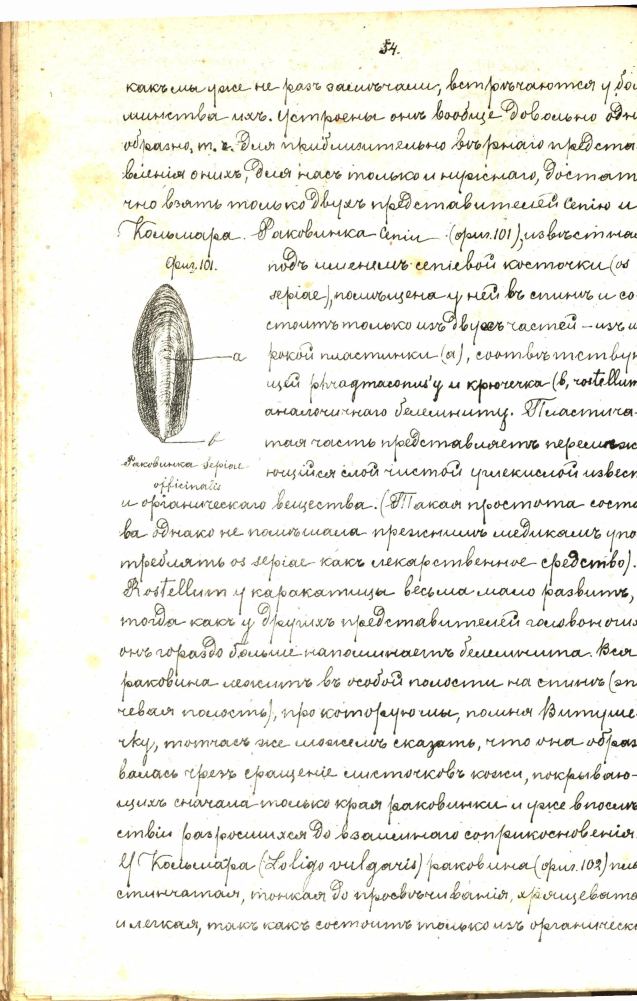 54.
какъ мы уже не разъ замѣчали, встрѣчаются у бол
шинства ихъ. Устроены онѣ вообще довольно одно
образно, т. ч. для приблизительно вѣрнаго предста
вленія о нихъ, для насъ только и нужнаго, достат
чно взять только двухъ представителей Сепію и
Кальмара. Раковинка Сепіи (фиг. 101), извѣстная
Фиг. 101.
подъ именемъ сепіевой косточки (os
sepiae), помѣщена у ней въ спинѣ и со
стоитъ только изъ двухъ частей – изъ ш
рокой пластинки (a), соотвѣтствую
щей phragmaconus'у и крючечка (b, rostellum
аналогичнаго белемниту. Пластича
тая часть представляетъ перемеж
ющійся слой чистой углекислой извест
a
b
Раковинка Sepiae
officinalis
и органическаго вещества. (Такая простота соста
ва однако не помѣшала прежнимъ медикамъ упо
треблять os sepiae какъ лекарственное средство).
Rostellum у каракатицы весьма мало развитъ,
тогда какъ у другихъ представителей головоногих
онъ гораздо больше напоминаетъ белемнита. Вся
раковина лежитъ въ особой полости на спинѣ (эп
чевая полость), про которую мы, помня Витуше
чку, тотчасъ же можемъ сказать, что она образ
валась чрезъ сращеніе листочковъ кожи, покрываю-
щихъ сначала только края раковинки и уже впослѣд
ствіи разросшихся до взаимнаго соприкосновенія.
У Кальмара (Loligo vulgaris) раковина (фиг. 102) пла
стинчатая, тонкая до просвѣчиванія, хрящевата
и легкая, такъ какъ состоитъ только изъ органическ